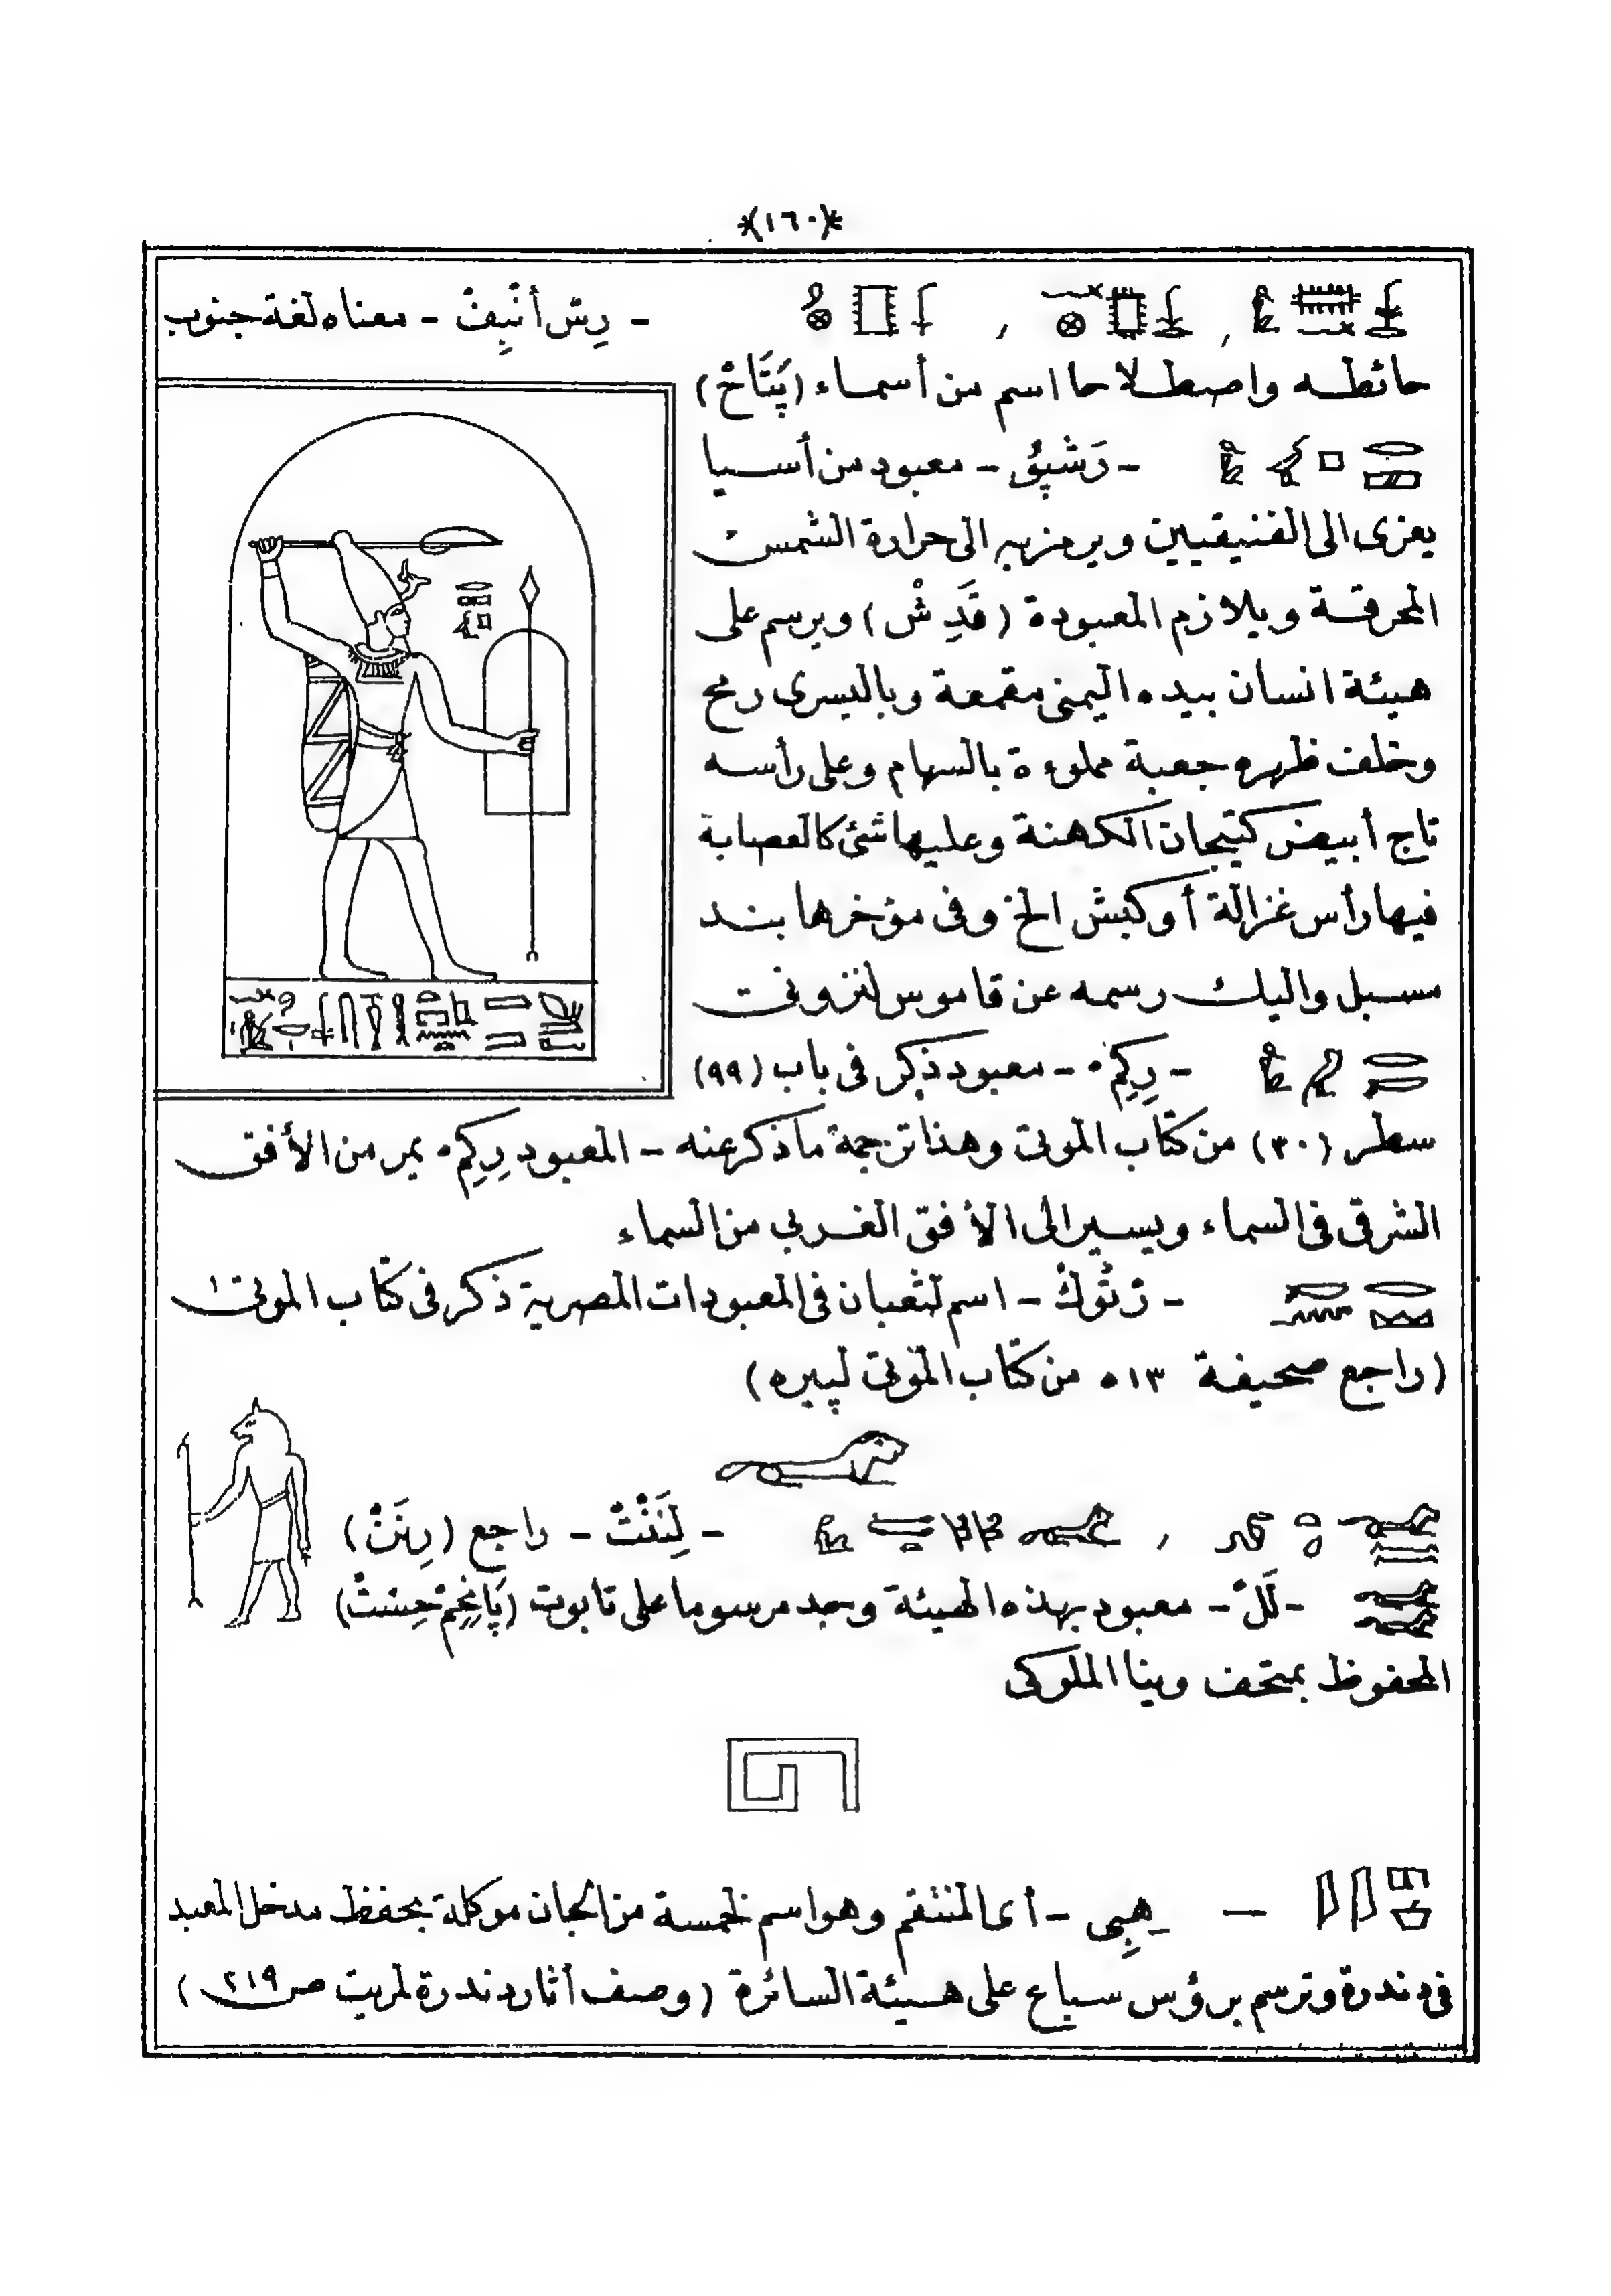 *(١٦٠)*
- رِسْ أنْبِفْ - معناه لغة جنوب
حائطه واصطلاحا اسم من أسماء (پَتَاحْ)
- رَشْپُو - معبود من أسيا
يعزى الى الفنيقيين ويرمز به الى حرارة الشمس
المحرقة ويلازم المعبودة (قَدِشْ) ويرسم على
هيئة انسان بيده اليمنى مقمعة وباليسرى رمح
وخلف ظهره جعبة مملوءة بالسهام وعلى رأسه
تاج أبيض كتيجان الكهنة وعليها شئ كالعصابة
فيها رأس غزالة أوكبش الخ وفى مؤخرها بند
مسبل واليك رسمه عن قاموس لنزونى
- رِكِمْ - معبود ذكر فى باب (٩٩)
سطر (٣٠) من كتاب الموتى وهذا ترجمة ماذكر عنه - المعبود رِكِمْ يمر من الأفق
الشرقى فى السماء ويسير الى الأفق الغربي من السماء
- اسم لثعبان فى المعبودات المصرية ذكر فى كتاب الموتى
(راجع صحيفة ٥١٣ من كتاب الموتى لپيره)
- لِنَنْتْ - راجع (رِنَنْ)
- لَلْ - معبود بهذه الهيئة وجد مرسوما على تابوت
المحفوظ بمتحف وينا الملوكى
— هِبِى - أى المنتقم وهواسم لخمسة من الجان موكلة بحفظ مدخل المعبد
فى دندرة وترسم برؤس سباع على هيئة السائرة (وصف أثار دندرة لمريت ص ٢١٩)